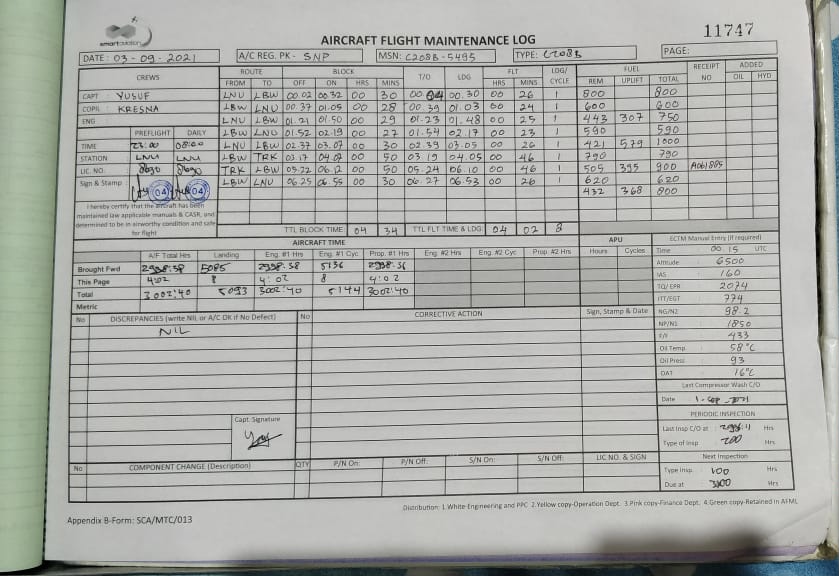 smartaviation
AIRCRAFT FLIGHT MAINTENANCE LOG
11747
DATE: 03-09-2021 A/C REG. PK - SNP MSN: C208B-5495 TYPE: C208B PAGE:
CREWS ROUTE BLOCK T/O LDG FLT LDG/CYCLE FUEL RECEIPT NO ADDED
FROM TO OFF ON HRS MINS HRS MINS REM UPLIFT TOTAL OIL HYD
CAPT YUSUF LNU LBW 00.02 00.32 00 30 00.04 00.30 00 26 1 800 800
COPIL KRESNA LBW LNU 00.37 01.05 00 28 00.39 01.03 00 24 1 600 600
ENG LNU LBW 01.21 01.50 00 29 01.23 01.48 00 25 1 443 307 750
PREFLIGHT DAILY LBW LNU 01.52 02.19 00 27 01.54 02.17 00 23 1 590 590
TIME 23:00 08:00 LNU LBW 02.37 03.07 00 30 02.39 03.05 00 26 1 421 579 1000
STATION LNU LNU LBW TRK 03.17 04.07 00 50 03.19 04.05 00 46 1 790 790
LIC. NO. 8690 8690 TRK LBW 05.22 06.12 00 50 05.24 06.10 00 46 1 505 395 900 A061885
Sign & Stamp 04 04 LBW LNU 06.25 06.55 00 30 06.27 06.53 00 26 1 620 620
432 368 800
I hereby certify that the aircraft has been
maintained law applicable manuals & CASR, and
determined to be in airworthy condition and safe
for flight
TTL BLOCK TIME 04 34 TTL FLT TIME & LDG 04 02 8
AIRCRAFT TIME APU ECTM Manual Entry (if required)
A/F Total Hrs Landing Eng. #1 Hrs Eng. #1 Cyc Prop. #1 Hrs Eng. #2 Hrs Eng. #2 Cyc Prop. #2 Hrs Hours Cycles Time 00.15 UTC
Brought Fwd 2998:38 5085 2998:38 5136 2998:38 Altitude 6500
This Page 4:02 8 4:02 8 4:02 IAS 160
Total 3002:40 5093 3002:40 5144 3002:40 TQ/ EPR 2074
Metric ITT/EGT 774
No DISCREPANCIES (write Nil or A/C OK if No Defect) No CORRECTIVE ACTION Sign, Stamp & Date NG/N2 98.2
NIL NP/N1 1850
F/F 433
Oil Temp. 58°C
Oil Press 93
OAT 16°C
Last Compressor Wash C/O
Date 1-SEP-2021
PERIODIC INSPECTION
Capt. Signature Last Insp C/O at : Hrs
Type of Insp : 200 Hrs
No COMPONENT CHANGE (Description) QTY P/N On: P/N Off: S/N On: S/N Off: LIC NO. & SIGN Next Inspection
Type Insp. 100 Hrs
Due at Hrs
Distribution: 1.White-Engineering and PPC 2.Yellow copy-Operation Dept. 3.Pink copy-Finance Dept. 4.Green copy-Retained in AFML
Appendix B-Form: SCA/MTC/013